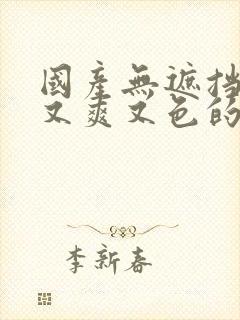 國產無遮挡
又爽又色的
李新春